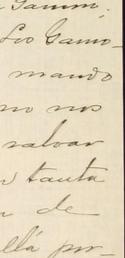 Gamm.
Lio Gamo-
mando
no nos
salvar
tanta
de
ellá por-